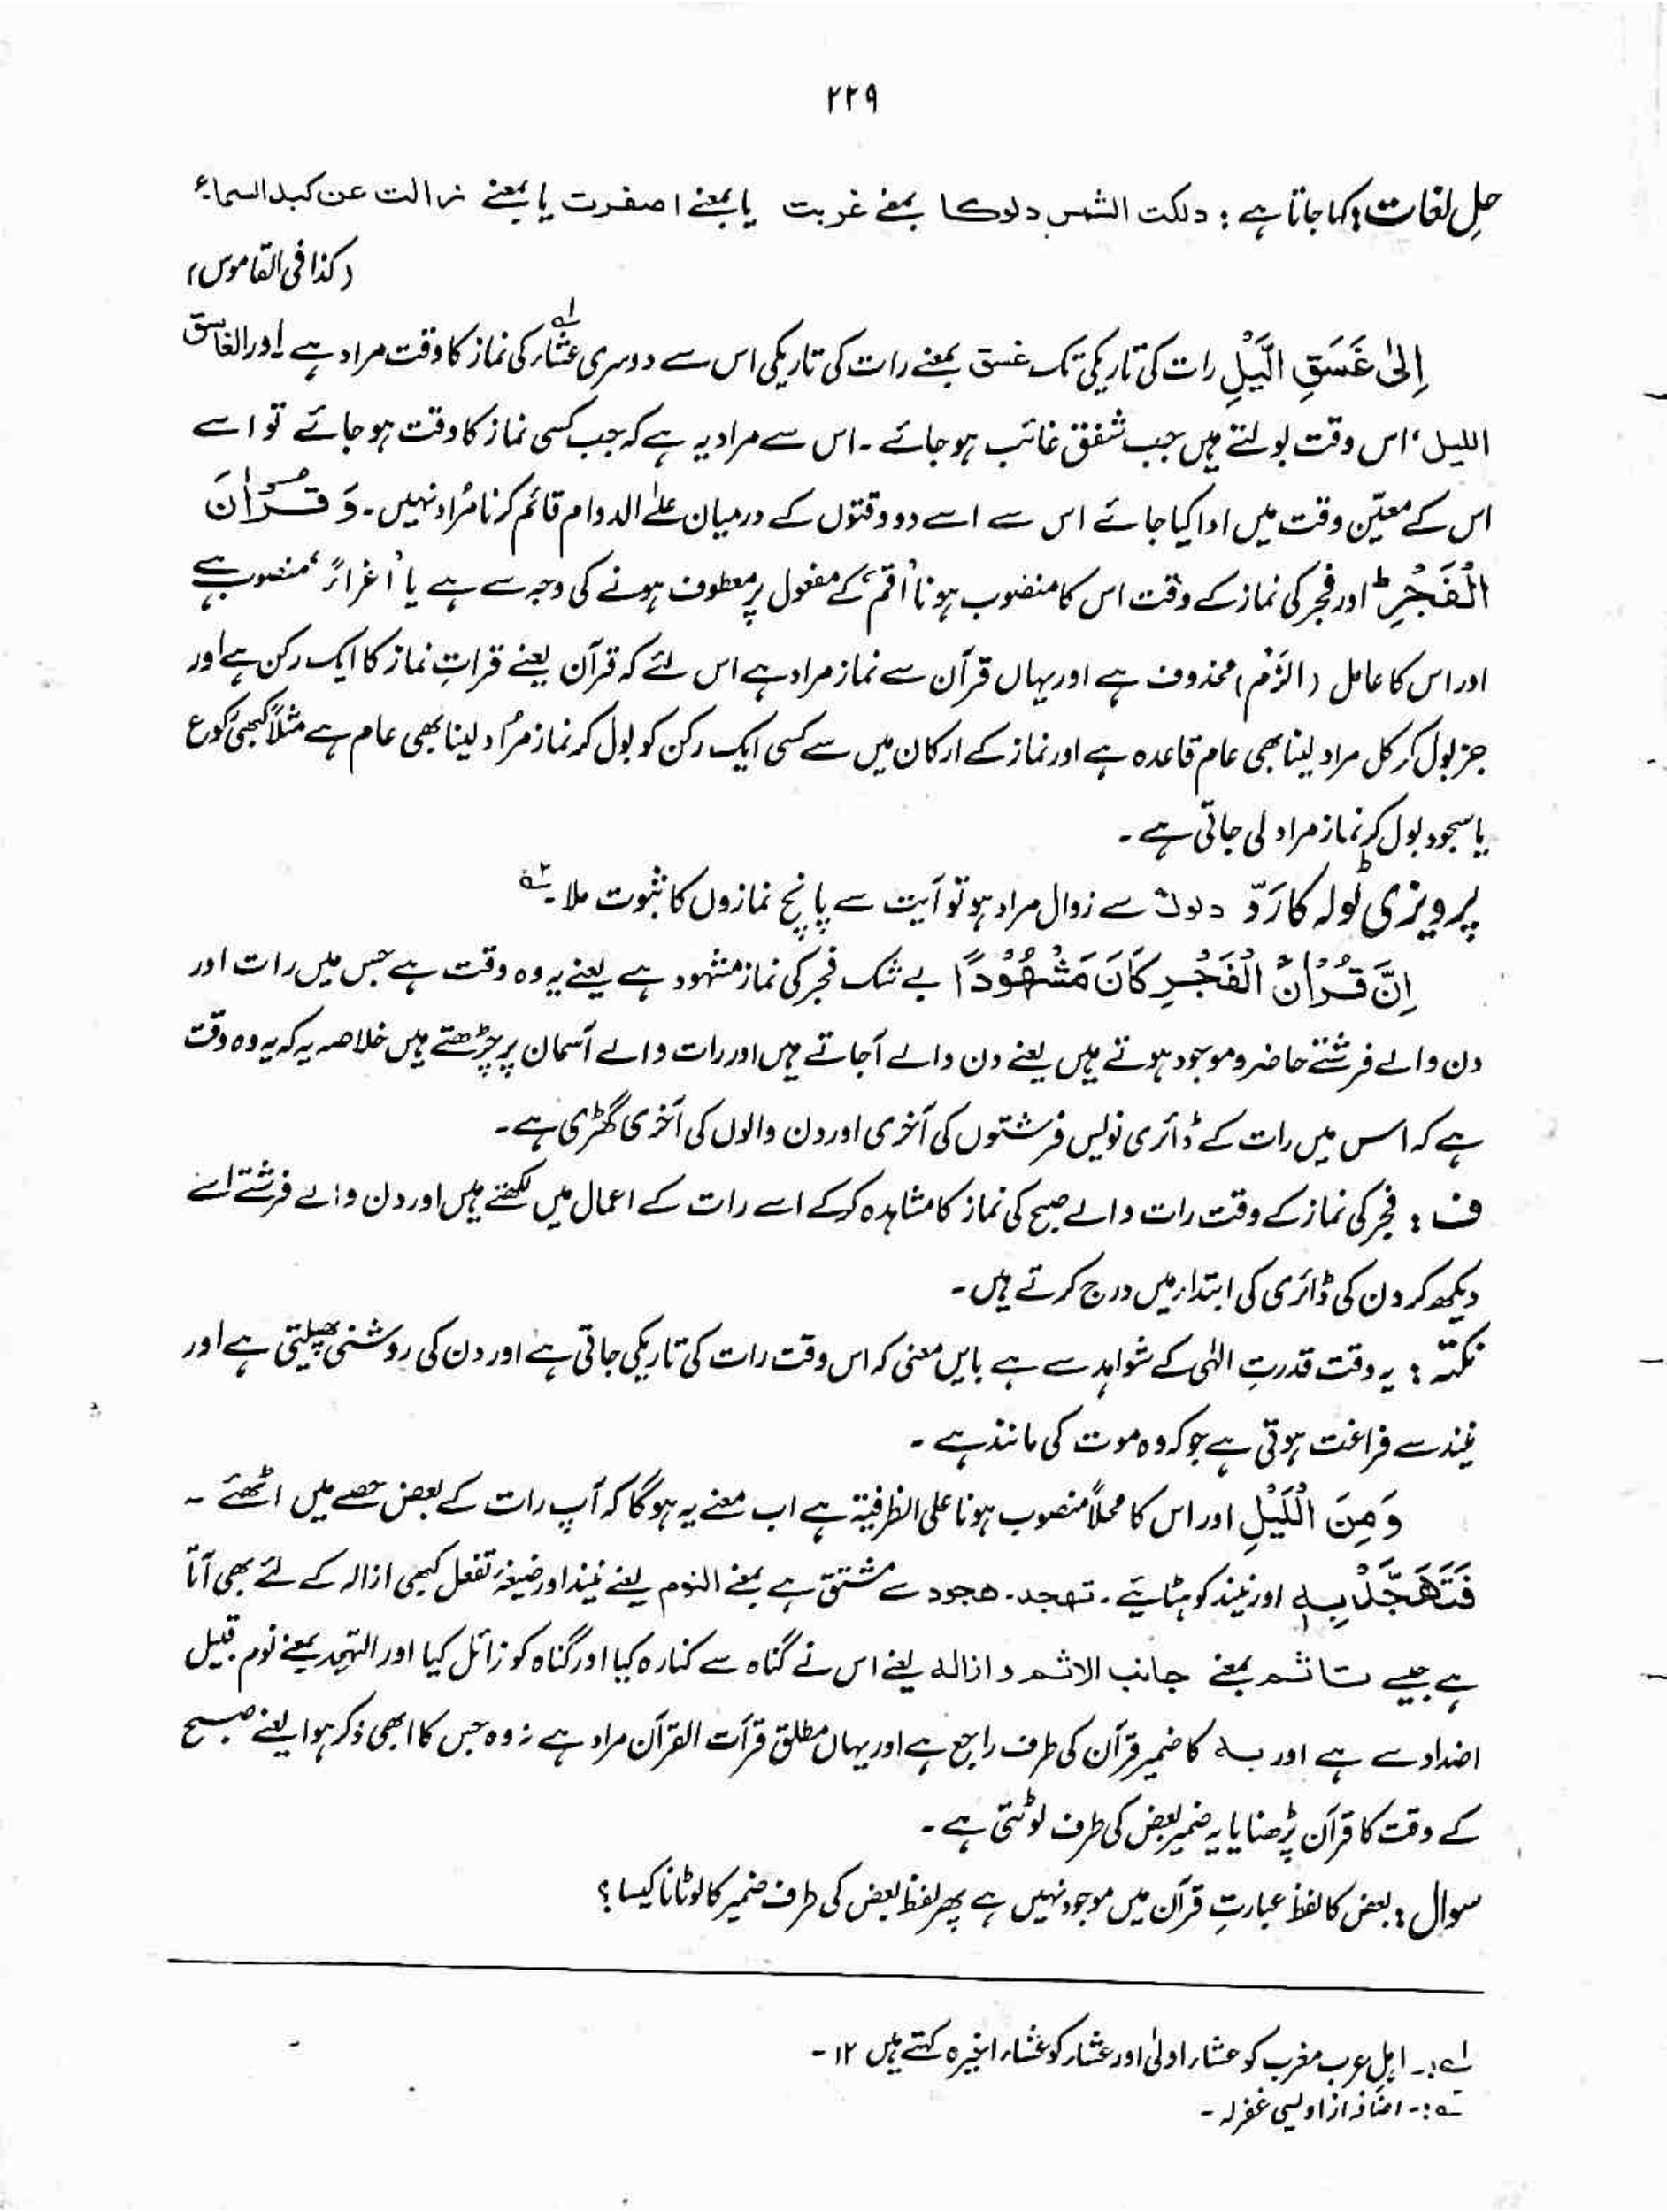 ۲۲۹
حلِ لغات؛ کہا جاتا ہے : دلکت الشمس دلوکا بمعنے غربت یا بمعنے اصفرت یا بمعنے زالت عن کبد السماء
(کذا فی القاموس)
اِلیٰ غَسَقِ الَّیْلِ رات کی تاریکی تک غسق بمعنے رات کی تاریکی اس سے دوسری عشاء۱؎ کی نماز کا وقت مراد ہے اور الغاسق
اللیل، اس وقت بولتے ہیں جب شفق غائب ہو جائے ۔ اس سے مراد یہ ہے کہ جب کسی نماز کا وقت ہو جائے تو اسے
اس کے معیّن وقت میں ادا کیا جائے اس سے اسے دو وقتوں کے درمیان علےٰ الدوام قائم کرنا مُراد نہیں ۔ وَ قُرْاٰنَ
الْفَجْرِ ط اور فجر کی نماز کے وقت اس کا منصوب ہونا اَقم، کے مفعول پر معطوف ہونے کی وجہ سے ہے یا اغراءً، منصوب ہے
اور اس کا عامل (الزَمْ) محذوف ہے اور یہاں قرآن سے نماز مراد ہے اس لئے کہ قرآن یعنے قراتِ نماز کا ایک رکن ہے اور
جز بول کر کل مراد لینا بھی عام قاعدہ ہے اور نماز کے ارکان میں سے کسی ایک رکن کو بول کر نماز مُراد لینا بھی عام ہے مثلاً کبھی رکوع
یا سجود بول کر نماز مراد لی جاتی ہے ۔
پرویزی ٹولہ کا رَدّ دلوک سے زوال مراد ہو تو آیت سے پانچ نمازوں کا ثبوت ملا ۔۲؎
اِنَّ قُرْاٰنَ الْفَجْرِ کَانَ مَشْهُوْدًا بے شک فجر کی نماز مشہود ہے یعنے یہ وہ وقت ہے جس میں رات اور
دن والے فرشتے حاضر و موجود ہوتے ہیں یعنے دن والے آجاتے ہیں اور رات والے آسمان پر چڑھتے ہیں خلاصہ یہ کہ یہ وہ وقت
ہے کہ اس میں رات کے ڈائری نویس فرشتوں کی آخری اور دن والوں کی آخری گھڑی ہے ۔
ف : فجر کی نماز کے وقت رات والے صبح کی نماز کا مشاہدہ کرکے اسے رات کے اعمال میں لکھتے ہیں اور دن والے فرشتے اسے
دیکھ کر دن کی ڈائری کی ابتداء میں درج کرتے ہیں ۔
نکتہ : یہ وقت قدرتِ الٰہی کے شواہد سے ہے بایں معنی کہ اس وقت رات کی تاریکی جاتی ہے اور دن کی روشنی پھیلتی ہے اور
نیند سے فراغت ہوتی ہے جو کہ وہ موت کی مانند ہے ۔
وَمِنَ الْلَیْلِ اور اس کا محلاً منصوب ہونا علی الظرفیة ہے اب معنے یہ ہوگا کہ آپ رات کے بعض حصے میں اٹھئے ۔
فَتَهَجَّدْ بِهٖ اور نیند کو ہٹایئے ۔ تهجد ۔ هجود سے مشتق ہے بمعنے النوم یعنے نیند اور صیغۂ تفعل کبھی ازالہ کے لئے بھی آتا
ہے جیسے تاثم بمعنے جانب الاثم و ازاله یعنے اس نے گناہ سے کنارہ کیا اور گناہ کو زائل کیا اور التہجد بمعنے نوم قبیل
اضداد سے ہے اور به کا ضمیر قرآن کی طرف راجع ہے اور یہاں مطلق قرآت القرآن مراد ہے نہ وہ جس کا ابھی ذکر ہوا یعنے صبح
کے وقت کا قرآن پڑھنا یا یہ ضمیر بعض کی طرف لوٹتی ہے ۔
سوال : بعض کا لفظ عبارتِ قرآن میں موجود نہیں ہے پھر لفظ بعض کی طرف ضمیر کا لوٹانا کیسا ؟
۱؎ :- اہلِ عرب مغرب کو عشاء اولیٰ اور عشاء کو عشاء اخیرہ کہتے ہیں ۱۲ -
۲؎ :- اضافہ از اویسی غفرلہ -